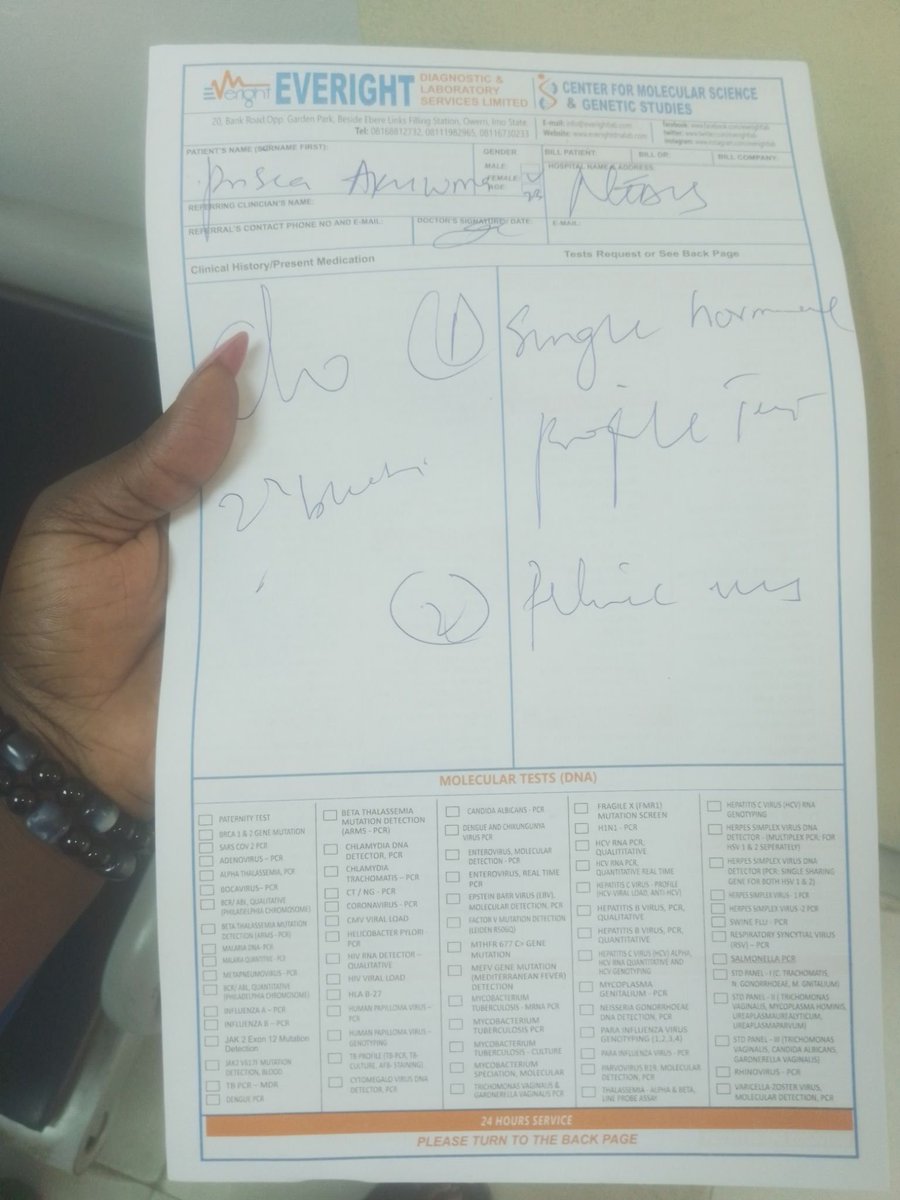 Everight EVERIGHT DIAGNOSTIC & LABORATORY SERVICES LIMITED
CENTER FOR MOLECULAR SCIENCE & GENETIC STUDIES
20, Bank Road Opp. Garden Park, Beside Ebere Links Filling Station, Owerri, Imo State.
Tel: 08168812732, 08111982965, 08116730233
E-mail: info@everightlab.com
Website: www.everightlab.com
facebook: www.facebook.com/everightlab
twitter: www.twitter.com/everightlab
Instagram: www.instagram.com/everightlab
PATIENT'S NAME (SURNAME FIRST):
Prisca
GENDER
MALE:
FEMALE:
AGE: 23
BILL PATIENT: BILL DR: BILL COMPANY:
HOSPITAL NAME & ADDRESS:
REFERRING CLINICIAN'S NAME:
REFERRAL'S CONTACT PHONE NO AND E-MAIL:
DOCTOR'S SIGNATURE/ DATE:
E-MAIL:
Clinical History/Present Medication
Tests Request or See Back Page
1 Single hormone
profile Test
2
MOLECULAR TESTS (DNA)
PATERNITY TEST
BRCA 1 & 2 GENE MUTATION
SARS COV 2 PCR
ADENOVIRUS – PCR
ALPHA THALASSEMIA, PCR
BOCAVIRUS– PCR
BCR/ ABL, QUALITATIVE
(PHILADELPHIA CHROMOSOME)
BETA THALASSEMIA MUTATION
DETECTION (ARMS - PCR)
MALARIA DNA- PCR
MALARIA QUANTITIVE - PCR
METAPNEUMOVIRUS - PCR
BCR/ ABL, QUANTITATIVE
(PHILADELPHIA CHROMOSOME)
INFLUENZA A – PCR
INFLUENZA B – PCR
JAK 2 Exon 12 Mutation
Detection
JAK2 V617F MUTATION
DETECTION, BLOOD
TB PCR – MDR
DENGUE PCR
BETA THALASSEMIA
MUTATION DETECTION
(ARMS - PCR)
CHLAMYDIA DNA
DETECTOR, PCR
CHLAMYDIA
TRACHOMATIS – PCR
CT / NG - PCR
CORONAVIRUS - PCR
CMV VIRAL LOAD
HELICOBACTER PYLORI -
PCR
HIV RNA DETECTOR –
QUALITATIVE
HIV VIRAL LOAD
HLA B-27
HUMAN PAPILLOMA VIRUS –
PCR
HUMAN PAPILLOMA VIRUS –
GENOTYPING
TB PROFILE (TB-PCR, TB-
CULTURE, AFB- STAINING)
CYTOMEGALO VIRUS DNA
DETECTOR, PCR
CANDIDA ALBICANS - PCR
DENGUE AND CHIKUNGUNYA
VIRUS PCR
ENTEROVIRUS, MOLECULAR
DETECTION - PCR
ENTEROVIRUS, REAL TIME
PCR
EPSTEIN BARR VIRUS (EBV),
MOLECULAR DETECTION, PCR
FACTOR V MUTATION DETECTION
(LEIDEN R506Q)
MTHFR 677 C> GENE
MUTATION
MEFV GENE MUTATION
(MEDITERRANEAN FEVER)
DETECTION
MYCOBACTERIUM
TUBERCULOSIS - MRNA PCR
MYCOBACTERIUM
TUBERCULOSIS PCR
MYCOBACTERIUM
TUBERCULOSIS - CULTURE
MYCOBACTERIUM
SPECIATION, MOLECULAR
TRICHOMONAS VAGINALIS &
GARDNERELLA VAGINALIS PCR
FRAGILE X (FMR1)
MUTATION SCREEN
H1N1 - PCR
HCV RNA PCR,
QUALITITATIVE
HCV RNA PCR,
QUANTITATIVE REAL TIME
HEPATITIS C VIRUS - PROFILE
(HCV-VIRAL LOAD, ANTI-HCV)
HEPATITIS B VIRUS, PCR,
QUALITATIVE
HEPATITIS B VIRUS, PCR,
QUANTITATIVE
HEPATITIS C VIRUS (HCV) ALPHA,
HCV RNA QUANTITATIVE AND
HCV GENOTYPING
MYCOPLASMA
GENITALIUM - PCR
NEISSERIA GONORRHOEAE
DNA DETECTION, PCR
PARA INFLUENZA VIRUS
GENOTYPING (1,2,3,4)
PARA INFLUENZA VIRUS - PCR
PARVOVIRUS B19, MOLECULAR
DETECTION, PCR
THALASSEMIA - ALPHA & BETA,
LINE PROBE ASSAY
HEPATITIS C VIRUS (HCV) RNA
GENOTYPING
HERPES SIMPLEX VIRUS DNA
DETECTOR - (MULTIPLEX PCR: FOR
HSV 1 & 2 SEPERATELY)
HERPES SIMPLEX VIRUS DNA
DETECTOR (PCR: SINGLE SHARING
GENE FOR BOTH HSV 1 & 2)
HERPES SIMPLEX VIRUS - 1 PCR
HERPES SIMPLEX VIRUS -2 PCR
SWINE FLU - PCR
RESPIRATORY SYNCYTIAL VIRUS
(RSV) – PCR
SALMONELLA PCR
STD PANEL - I (C. TRACHOMATIS,
N. GONORRHOEAE, M. GNITALIUM)
STD PANEL – II ( TRICHOMONAS
VAGINALIS, MYCOPLASMA HOMINIS,
UREAPLASMAUREALYTICUM,
UREAPLASMAPARVUM)
STD PANEL – III (TRICHOMONAS
VAGINALIS, CANDIDA ALBICANS,
GARDNERELLA VAGINALIS)
RHINOVIRUS - PCR
VARICELLA-ZOSTER VIRUS,
MOLECULAR DETECTION, PCR
24 HOURS SERVICE
PLEASE TURN TO THE BACK PAGE